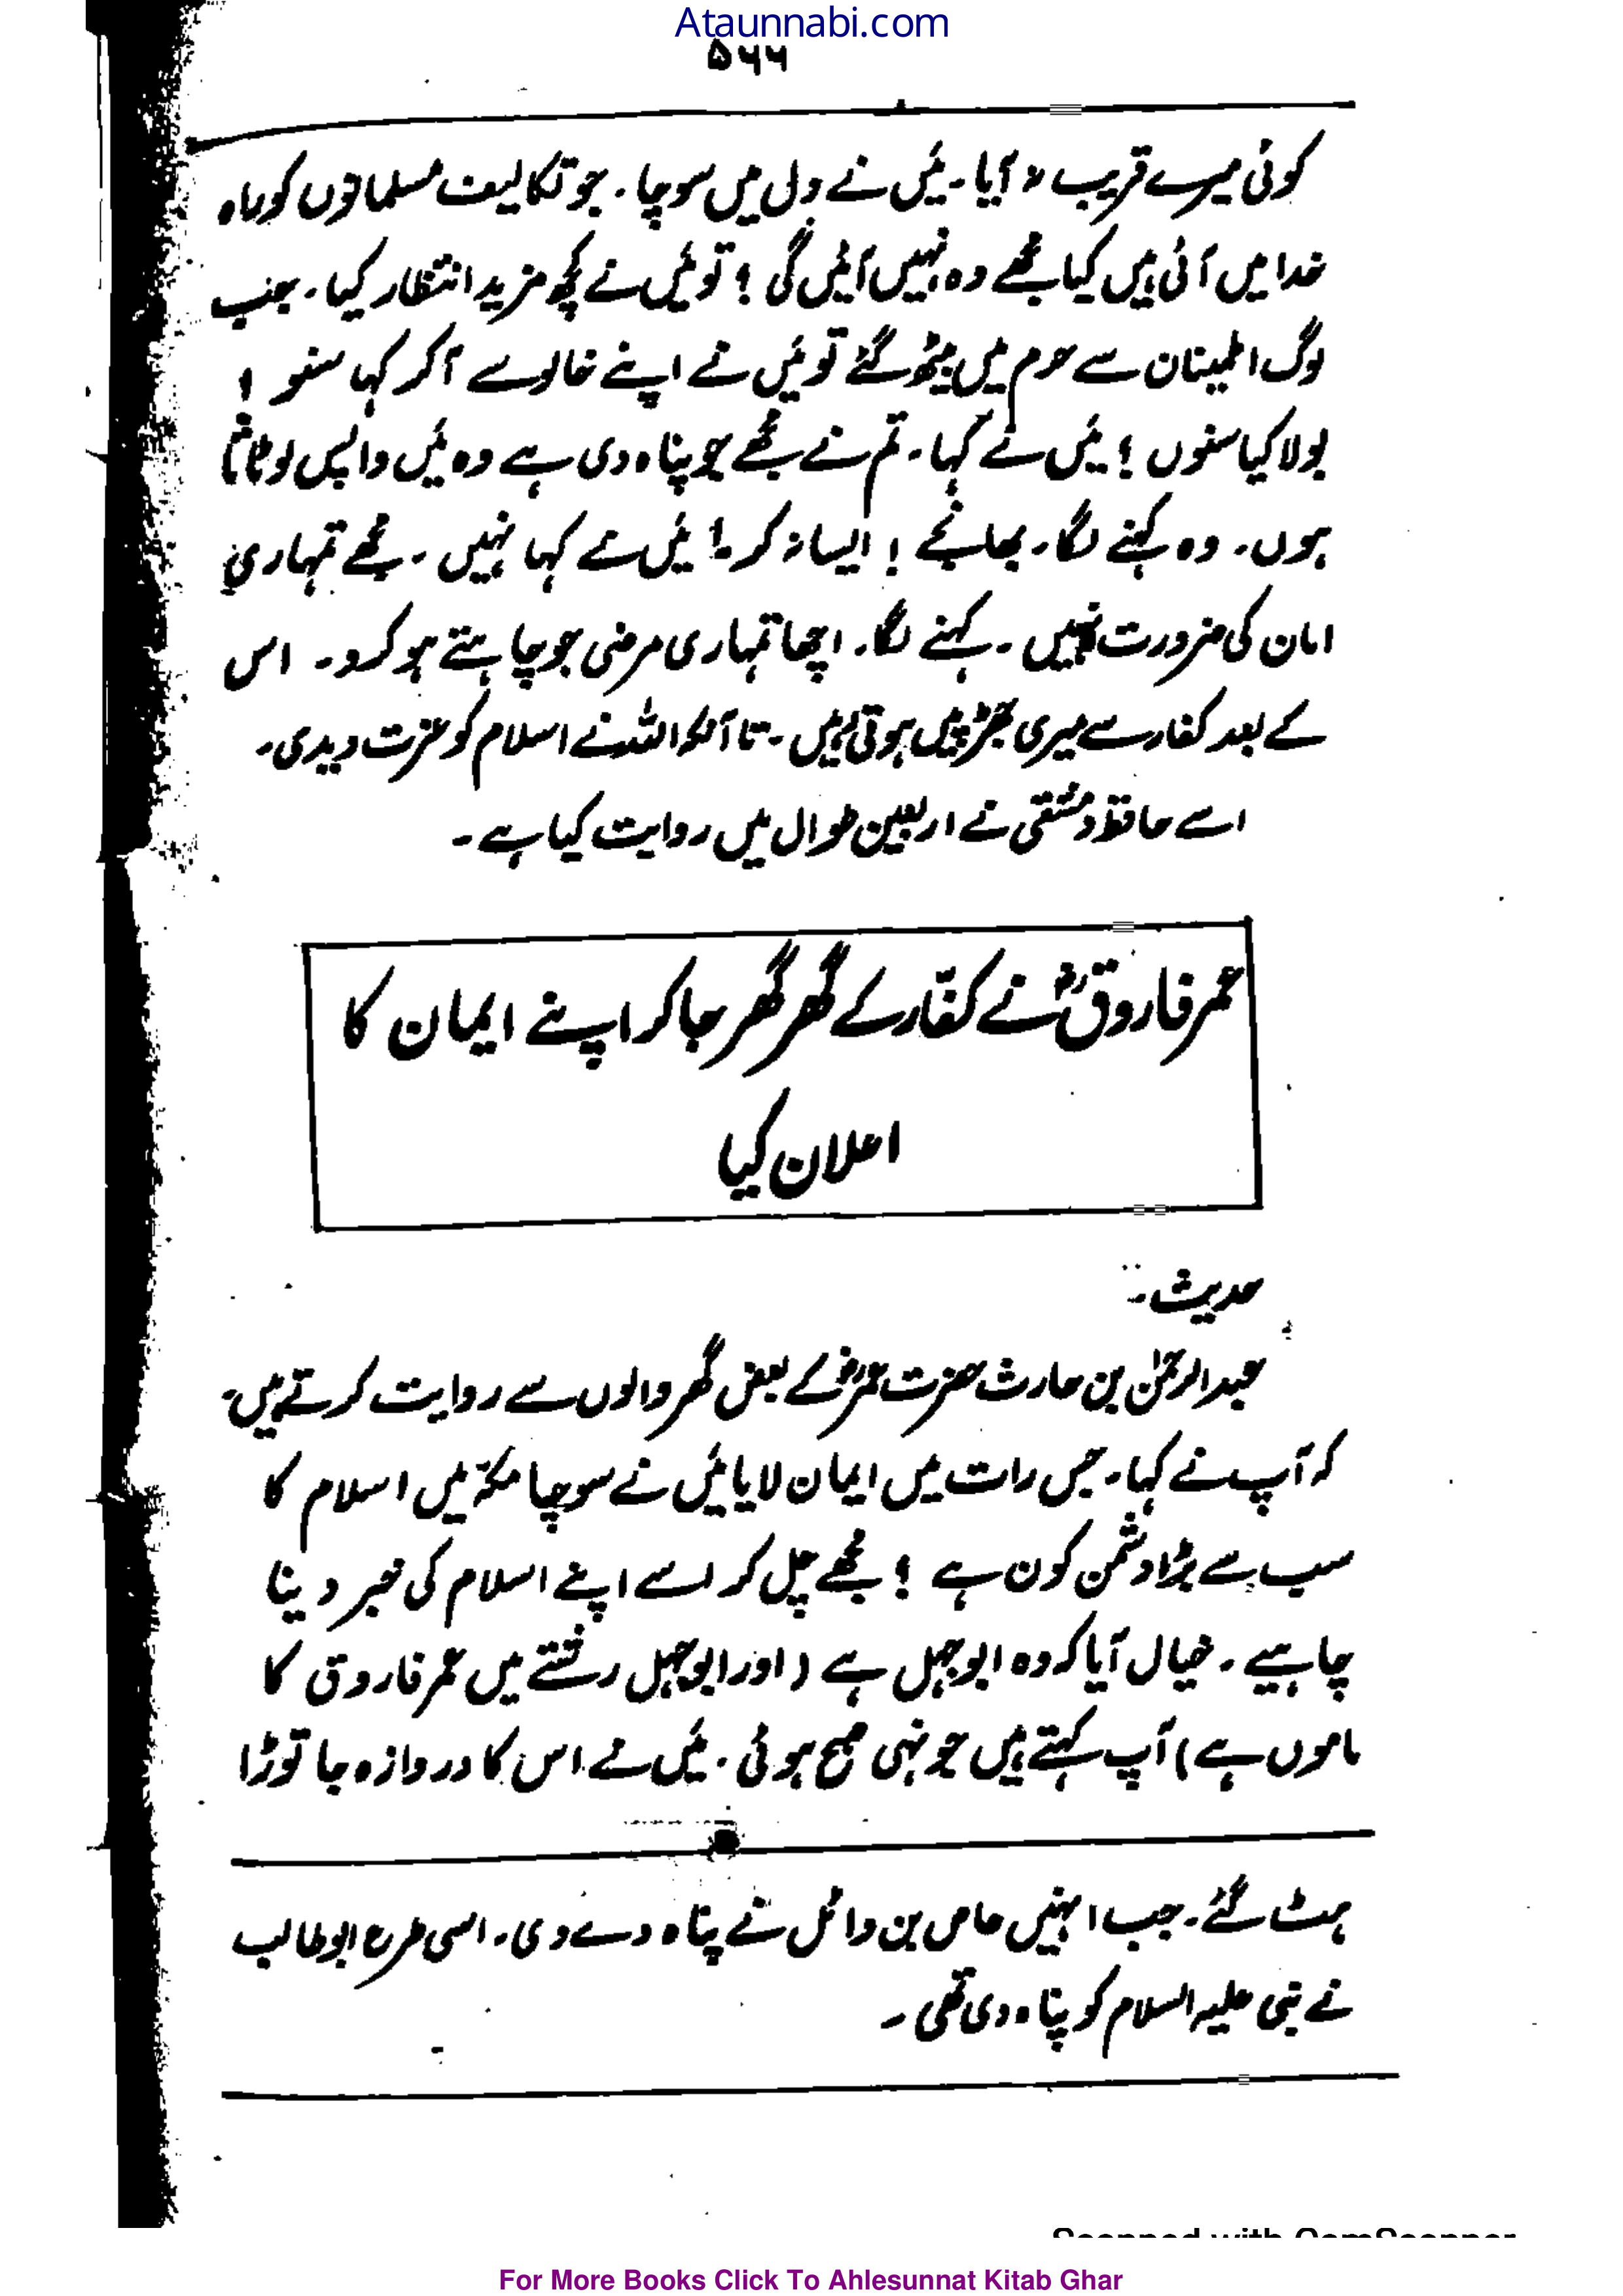 Ataunnabi.com
۵۶۶
کوئی میرے قریب نہ آیا۔ میں نے دل میں سوچا۔ جو تکالیف مسلمانوں کو راہ
خدا میں آئی ہیں کیا مجھے وہ نہیں آئیں گی ؟ تو میں نے کچھ مزید انتظار کیا۔ جب
لوگ اطمینان سے حرم میں بیٹھ گئے تو میں نے اپنے خالو سے آکر کہا سنو !
بولا کیا سنوں ؟ میں نے کہا۔ تم نے مجھے جو پناہ دی ہے وہ میں واپس لوٹاتا
ہوں۔ وہ کہنے لگا۔ بھانجے ! ایسا نہ کر ! میں نے کہا نہیں ۔ مجھے تمہاری
امان کی ضرورت نہیں ۔ کہنے لگا۔ اچھا تمہاری مرضی جو چاہتے ہو کرو۔ اس
کے بعد کفار سے میری جھڑپیں ہوتی رہیں ۔ تا آنکہ اللہ نے اسلام کو عزت دیدی۔
اسے حافظ دمشقی نے اربعین طوال میں روایت کیا ہے ۔
عمر فاروقؓ نے کفّار کے گھر گھر جا کر اپنے ایمان کا
اعلان کیا
حدیث۔
عبدالرحمٰن بن حارث حضرت عمرؓ کے بعض گھر والوں سے روایت کرتے ہیں۔
کہ آپ نے کہا۔ جس رات میں ایمان لایا میں نے سوچا مکہ میں اسلام کا
سب سے بڑا دشمن کون ہے ؟ مجھے چل کر اسے اپنے اسلام کی خبر دینا
چاہیے ۔ خیال آیا کہ وہ ابوجہل ہے (اور ابوجہل رشتے میں عمر فاروق کا
ماموں ہے) آپ کہتے ہیں جونہی صبح ہوئی ۔ میں نے اس کا دروازہ جا توڑا
ہٹ گئے۔ جب انہیں عاص بن وائل نے پناہ دے دی۔ اسی طرح ابوطالب
نے نبی علیہ السلام کو پناہ دی تھی ۔
Scanned with CamScanner
For More Books Click To Ahlesunnat Kitab Ghar